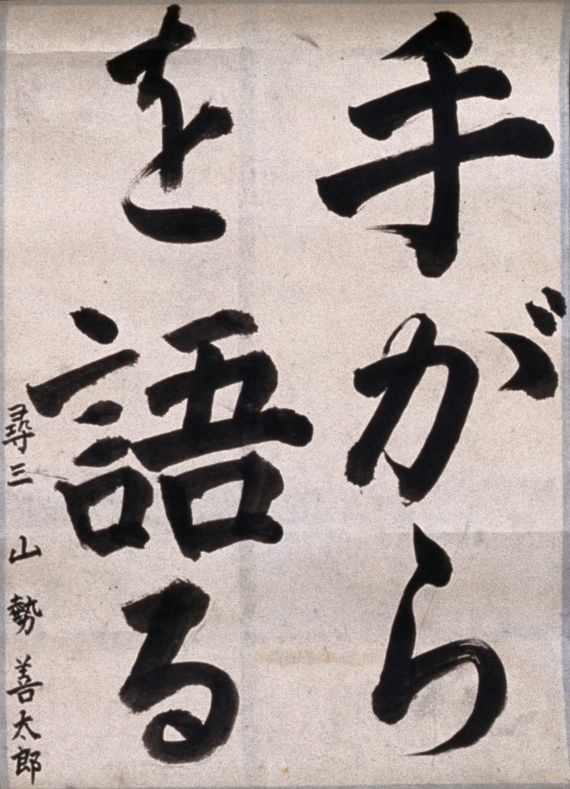 手がら
を語る
尋三 山勢善太郎